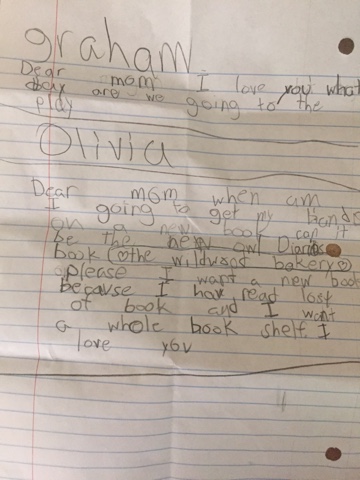 graham
Dear mom I love you what
day are we going to the
play
Olivia
Dear mom when am
I going to get my hands
on a new book can it
be the new owl Diaries
book (♡the wildwood bakery♡)
please I want a new book
because I hav read lost
of book and I want
a whole book shelf I
love you